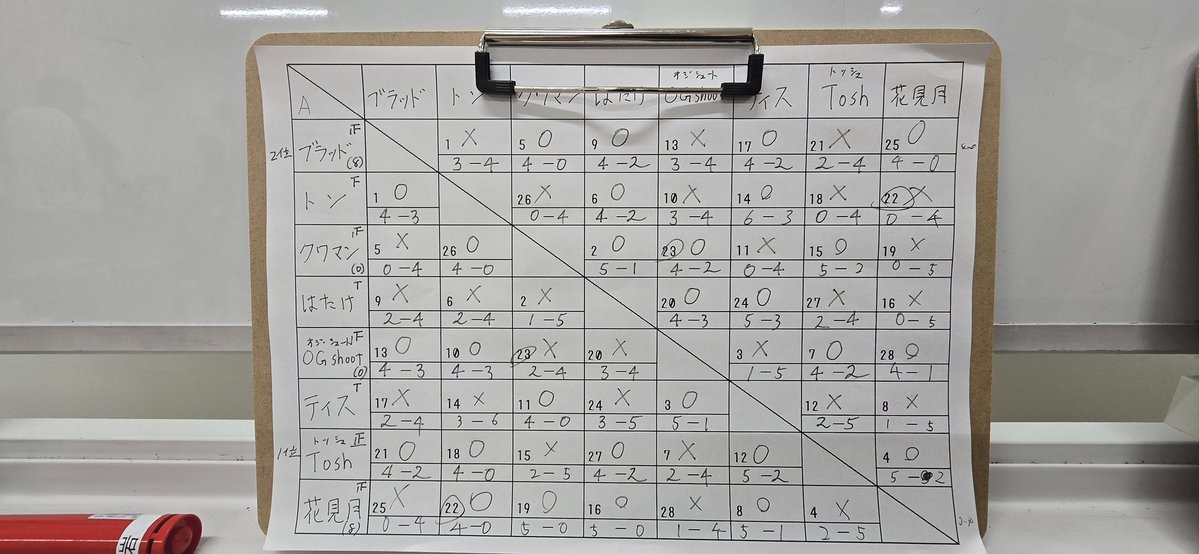 A ブラッド トン クワマン はたけ オジシュート OGshoot ティス トッシュ Tosh 花見月
2位 ブラッド 正 (8) 1 X 5 O 9 O 13 X 17 O 21 X 25 O
3-4 4-0 4-2 3-4 4-2 2-4 4-0
トン T 1 O 26 X 6 O 10 X 14 O 18 X 22 X
4-3 0-4 4-2 3-4 6-3 0-4 0-4
クワマン 正 (0) 5 X 26 O 2 O 23 O 11 X 15 O 19 X
0-4 4-0 5-1 4-2 0-4 5-2 0-5
はたけ T 9 X 6 X 2 X 20 O 24 O 27 X 16 X
2-4 2-4 1-5 4-3 5-3 2-4 0-5
オジシュート 正 OGshoot (0) 13 O 10 O 23 X 20 X 3 X 7 O 28 O
4-3 4-3 2-4 3-4 1-5 4-2 4-1
ティス T 17 X 14 X 11 O 24 X 3 O 12 X 8 X
2-4 3-6 4-0 3-5 5-1 2-5 1-5
1位 トッシュ 正 Tosh 21 O 18 O 15 X 27 O 7 X 12 O 4 O
4-2 4-0 2-5 4-2 2-4 5-2 5-2
花見月 正 (8) 25 X 22 O 19 O 16 O 28 X 8 O 4 X
0-4 4-0 5-0 5-0 1-4 5-1 2-5